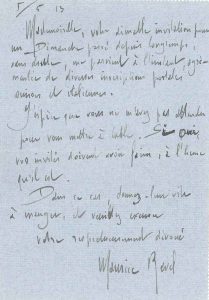 5/5 13
Mademoiselle, votre aimable invitation pour
un Dimanche passé depuis longtemps,
sans doute, me parvient à l'instant, agré-
mentée de diverses inscriptions postales
J'espère que vous ne m'avez pas attendu
pour vous mettre à table. Si oui,
vos invités doivent avoir faim, à l'heure
qu'il est.
Dans ce cas, donnez-leur vite
à manger, et veuillez croire
votre respectueusement dévoué
Maurice Ravel